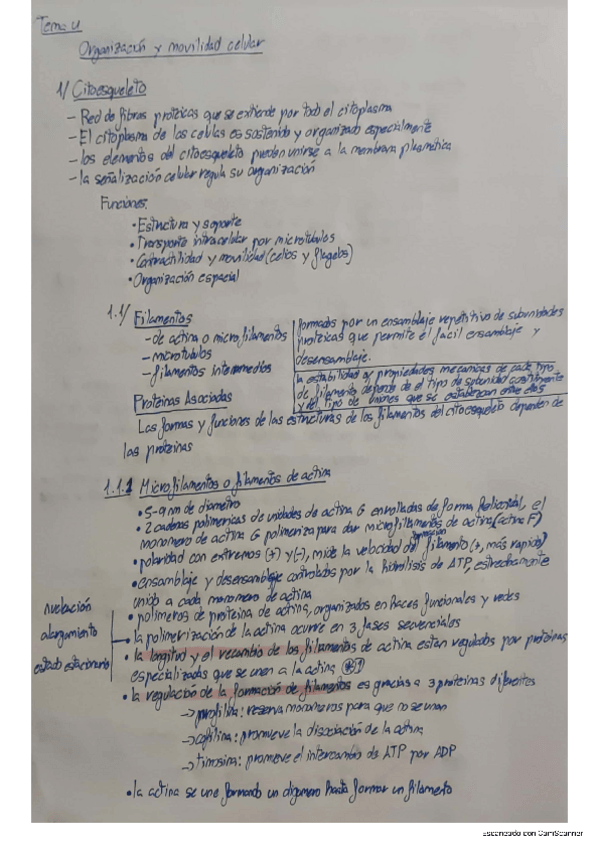 Tema 4
Organización y movilidad celular
1/ Citoesqueleto
- Red de fibras proteicas que se extiende por todo el citoplasma
- El citoplasma de las celulas es sostenido y organizado espacialmente
- los elementos del citoesqueleto pueden unirse a la membrana plasmática
- la señalización celular regula su organización
Funciones:
• Estructura y soporte
• Transporte intracelular por microtúbulos
• Contractilidad y movilidad (cilios y flagelos)
• Organización espacial
1.1/ Filamentos
- de actina o microfilamentos
- microtubulos
- filamentos intermedios
formados por un ensamblaje repetitivo de subunidades
proteicas que permite el facil ensamblaje y
desensamblaje.
la estabilidad y propiedades mecanicas de cada tipo
de filamento depende de el tipo de subunidad constituyente
y del tipo de uniones que se establezcan entre ellas
Proteinas Asociadas
Las formas y funciones de las estructuras de los filamentos del citoesqueleto dependen de
las proteinas
1.1.1 Microfilamentos o filamentos de actina
• 5-9 nm de diametro
• 2 cadenas polimericas de unidades de actina G enrolladas de forma helicoidal, el
monomero de actina G polimeriza para dar microfilamentos de actina (actina F)
• polaridad con extremos (+) y (-), mide la velocidad del filamento (+, más rapido)
• ensamblaje y desensamblaje controlados por la hidrolisis de ATP, estrechamente
unido a cada monomero de actina
• polimeros de proteina de actina, organizados en haces funcionales y redes
nucleación
alargamiento
estado estacionario
→ la polimerización de la actina ocurre en 3 fases secuenciales
• la longitud y el recambio de los filamentos de actina estan regulados por proteinas
especializadas que se unen a la actina
• la regulación de la formación de filamentos es gracias a 3 proteinas diferentes
→ profilina: reserva monomeros para que no se unan
→ cofilina: promueve la disociación de la actina
→ timosina: promueve el intercambio de ATP por ADP
• la actina se une formando un oligomero hasta formar un filamento
Escaneado con CamScanner